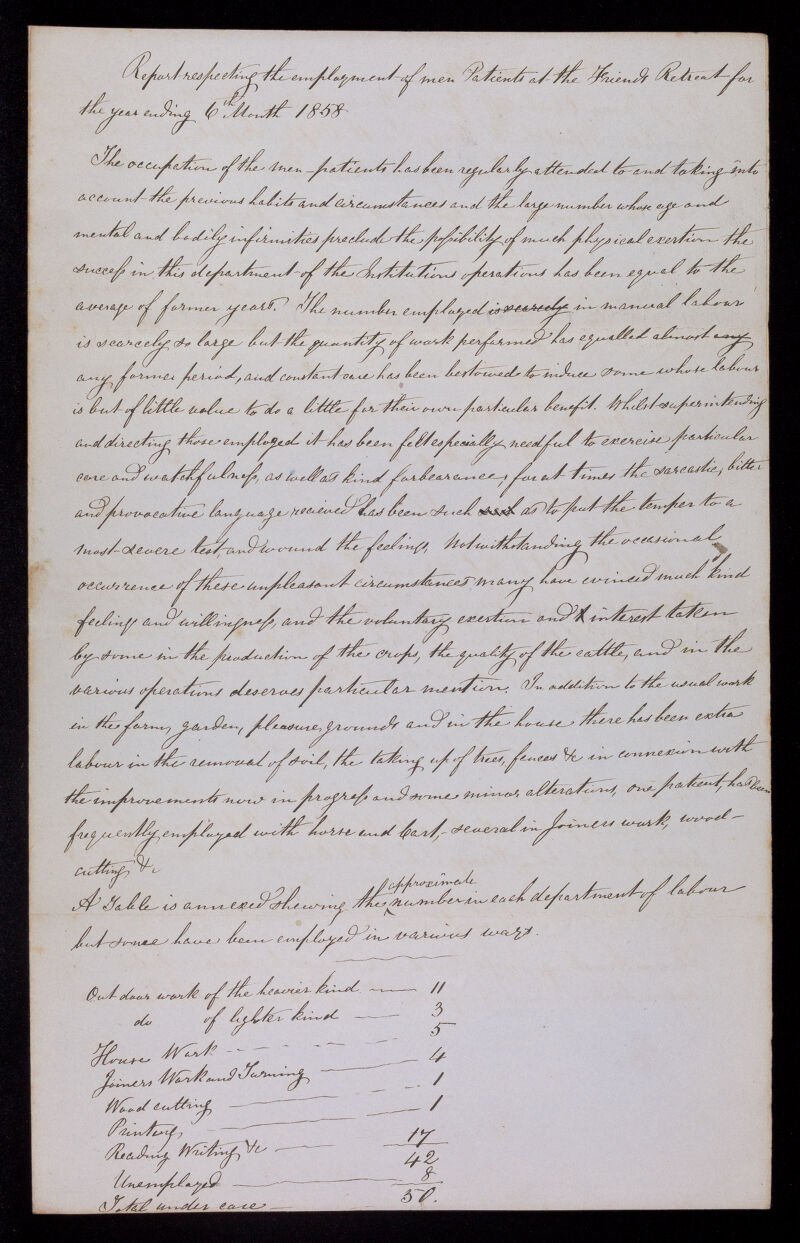 Report respecting the employment of men Patients at the Friends Retreat for
the year ending 6th Month 1858
The occupation of the men-patients has been regularly attended to and taking into
account the previous habits and circumstances and the large number whose age and
mental and bodily infirmities preclude the possibility of much physical exertion the
success in this department of the Institutions operations has been equal to the
average of former years. The number employed is scarcely in manual labour
is scarcely so large but the quantity of work performed has equalled almost any
any former period, and constant care has been bestowed to induce some whose labour
is but of little value to do a little for their own particular benefit. Whilst superintending
and directing those employed it has been felt especially needful to exercise particular
care and watchfulness, as well as kind forbearance, for at times the sarcastic, bitter
and provocative language recieved has been such as to put the temper to a
most severe test, and wound the feelings. Notwithstanding the occasional
occurrence of these unpleasant circumstances many have evinced much kind
feeling and willingness, and the voluntary exertion and interest taken
by some in the production of the crops, the quality of the cattle, and in the
various operations deserves particular mention. In addition to the usual work
in the farm, garden, pleasure grounds and in the house there has been extra
labour in the removal of soil, the taking up of trees, fences &c in connexion with
the improvements now in progress and some minor alterations, one patient, has been
frequently employed with horse and Cart,- several in Joiners work, wood-
cutting &c
A Table is annexed shewing the approximate number in each department of labour
but some have been employed in various ways.
Out door work of the heavier kind 11
do of lighter kind 3
House Work 5
Joiners Work and Turning 4
Wood cutting 1
Printing 1
Reading Writing &c 17
42
Unemployed 8
Total under care 50.